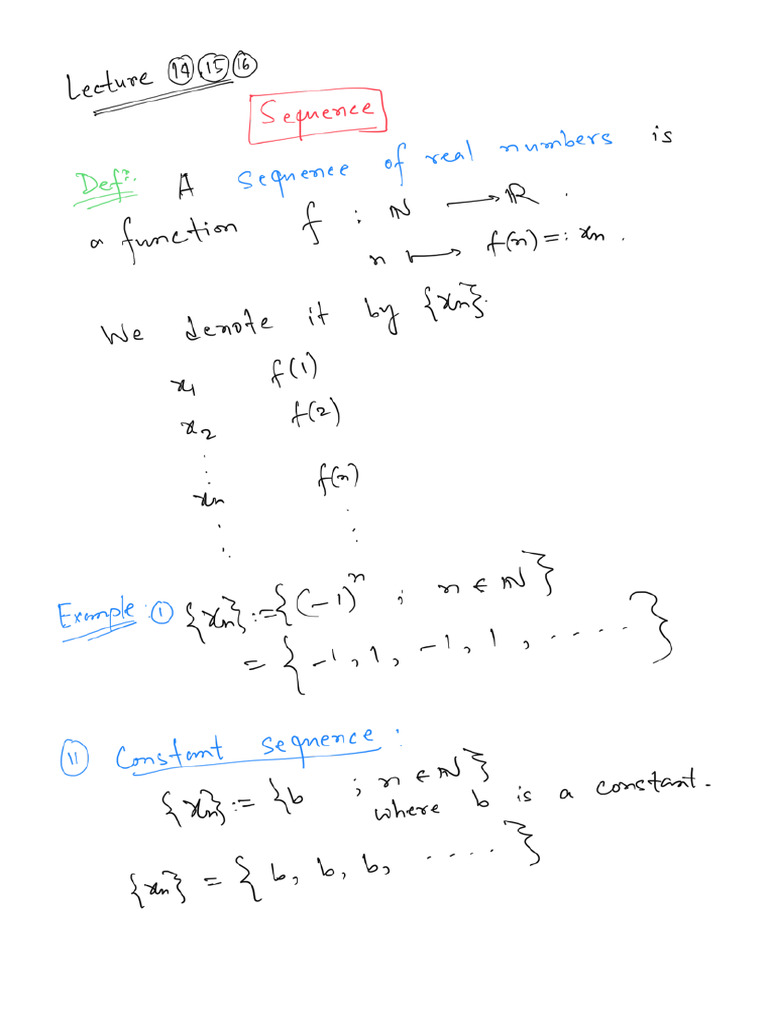 Lecture 14 15 16
Sequence
Defⁿ: A sequence of real numbers is
a function f : ℕ ⟶ ℝ.
n ⟼ f(n) =: xₙ.
We denote it by {xₙ}.
x₁ f(1)
x₂ f(2)
⋮
xₙ f(n)
⋮ ⋮
Example: ① {xₙ} := {(-1)ⁿ ; n ∈ ℕ}
= {-1, 1, -1, 1, .....}
⑪ Constant sequence:
{xₙ} := {b ; n ∈ ℕ}
where b is a constant.
{xₙ} = {b, b, b, .....}